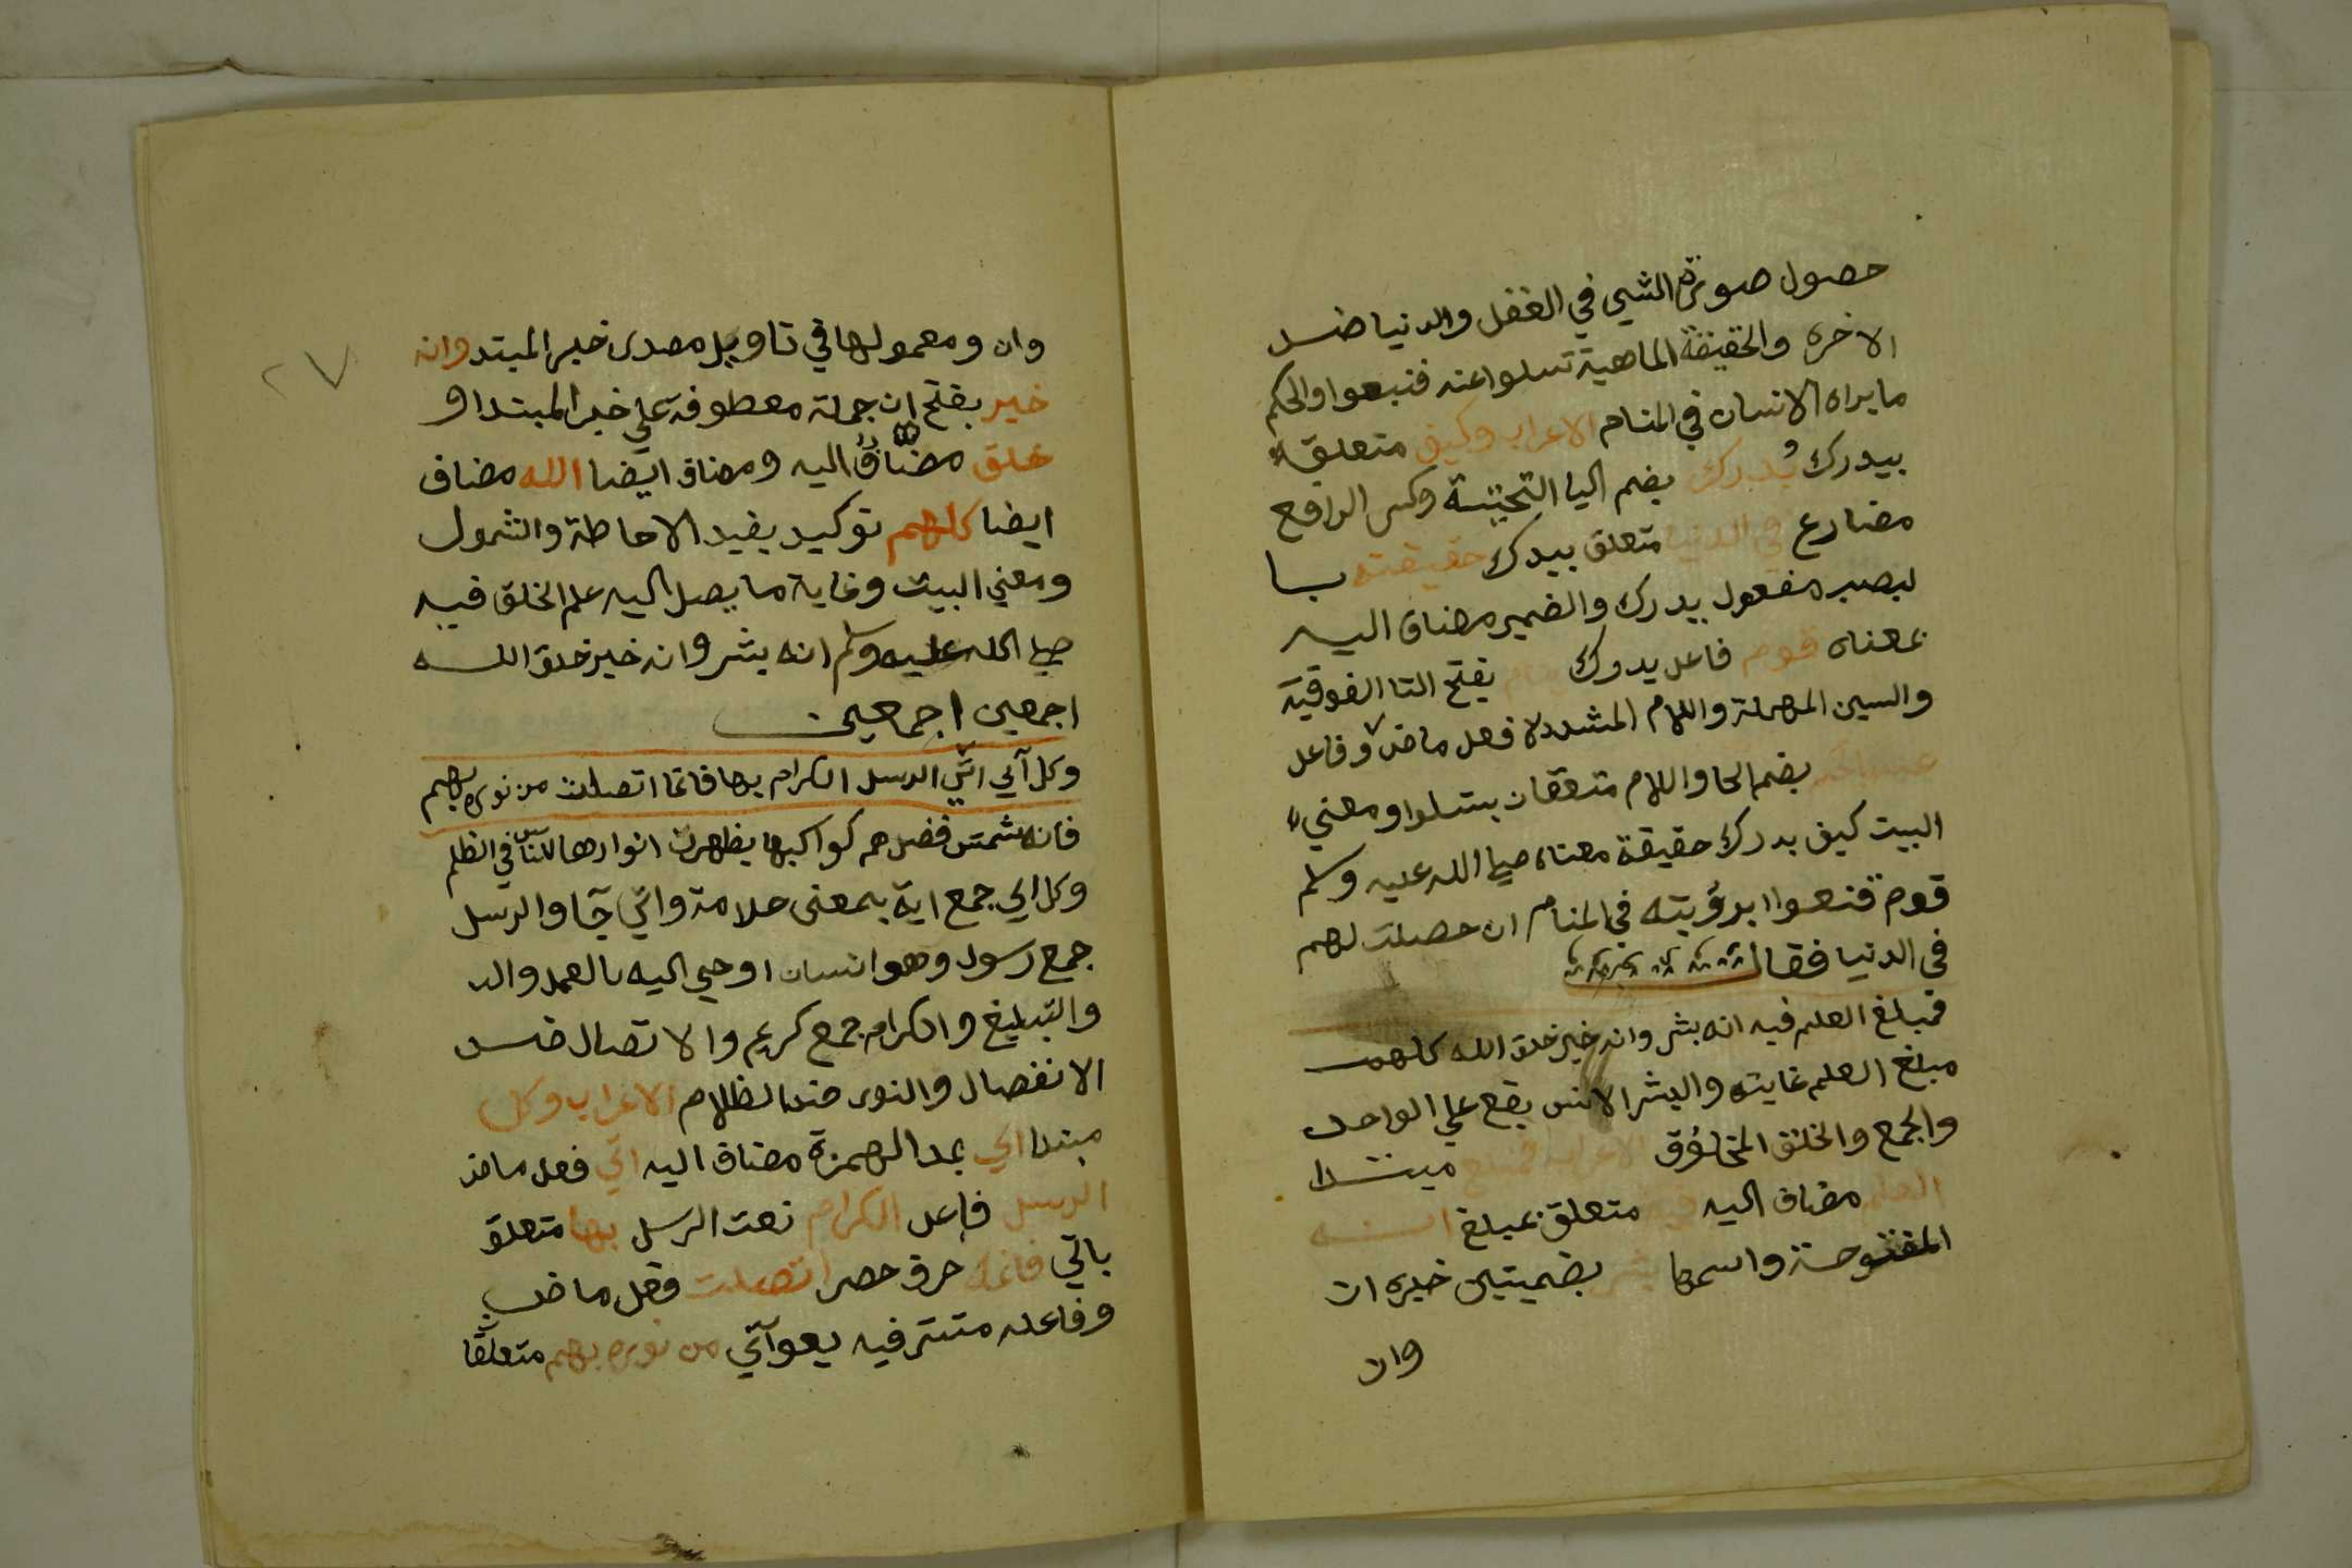 حصول صورة الشي في العقل والدنيا ضد
الاخره والحقيقة الماهية تسلوا عنه قنعوا والحكم
ما يراه الانسان في المنام الاعراب وكيف متعلقة
بيدرك يُدرك بضم اليا التحتية وكسر الرا فع
مضارع في الدنيا متعلق بيدرك حقيقته با
لنصب مفعول بيدرك والضمير مضاف اليه
بمعناه قوم فاعل يدرك نيام بفتح التا الفوقية
والسين المهملة واللام المشددة فعل ماض وفاعل
عنه بالحلم بضم الحا واللام متعلقان بتسلوا ومعني
البيت كيف يدرك حقيقة معناه صلي الله عليه وسلم
قوم قنعوا برؤيته في المنام ان حصلت لهم
في الدنيا فقال
فمبلغ العلم فيه انه بشر وانه خير خلق الله كلهم
مبلغ العلم غايته والبشر الانس يقع علي الواحد
والجمع والخلق المخلوق الاعراب فمبلغ مبتدا
العلم مضاف اليه فيه متعلق بمبلغ انه
المفتوحة واسمها بشر بضميتين خبره ان
وان
٢٧
وان ومعمولها في تاويل مصدر خبر المبتد وانه
خير بفتح ان جملة معطوفة علي خبر المبتدا و
خلق مضاف اليه ومضاف ايضا الله مضاف
ايضا كلهم توكيد يفيد الاحاطة والشمول
ومعني البيت وغاية ما يصل اليه علم الخلق فيه
صلي الله عليه وسلم انه بشر وانه خير خلق الله
اجمعين اجمعين
وكل آي اتي الرسل الكرام بها فانما اتصلت من نوره بهم
فانه شمس فضل هم كواكبها يظهرن انوارها للناس في الظلم
وكل اي جمع اية بمعنى علامة واتي جا والرسل
جمع رسول وهو انسان اوحي اليه بالعمل
والتبليغ والكرام جمع كريم والاتصال ضد
الانفصال والنور ضد الظلام الاعراب وكل
مبتدا اي بمد الهمزة مضاف اليه اتي فعل ماض
الرسل فاعل الكرام نعت الرسل بها متعلق
باتي فانما حرف حصر اتصلت فعل ماض
وفاعله مستتر فيه يعو آتي من نوره بهم متعلقا